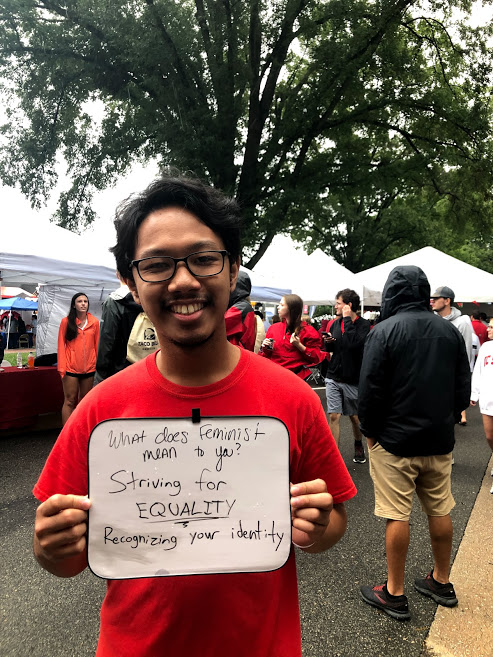 What does Feminist
mean to ya?
Striving for
EQUALITY
Recognizing your identity
TACO BELL